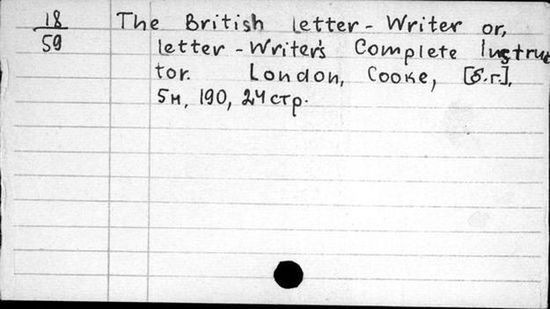 18
59
The British letter-Writer or,
letter-Writer's Complete Instruc
tor. London, Cooke, [б.г.],
5н, 190, 24 стр.